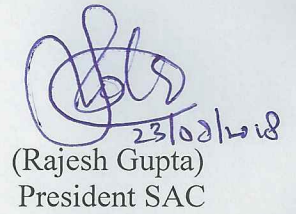 23/08/2018
(Rajesh Gupta)
President SAC